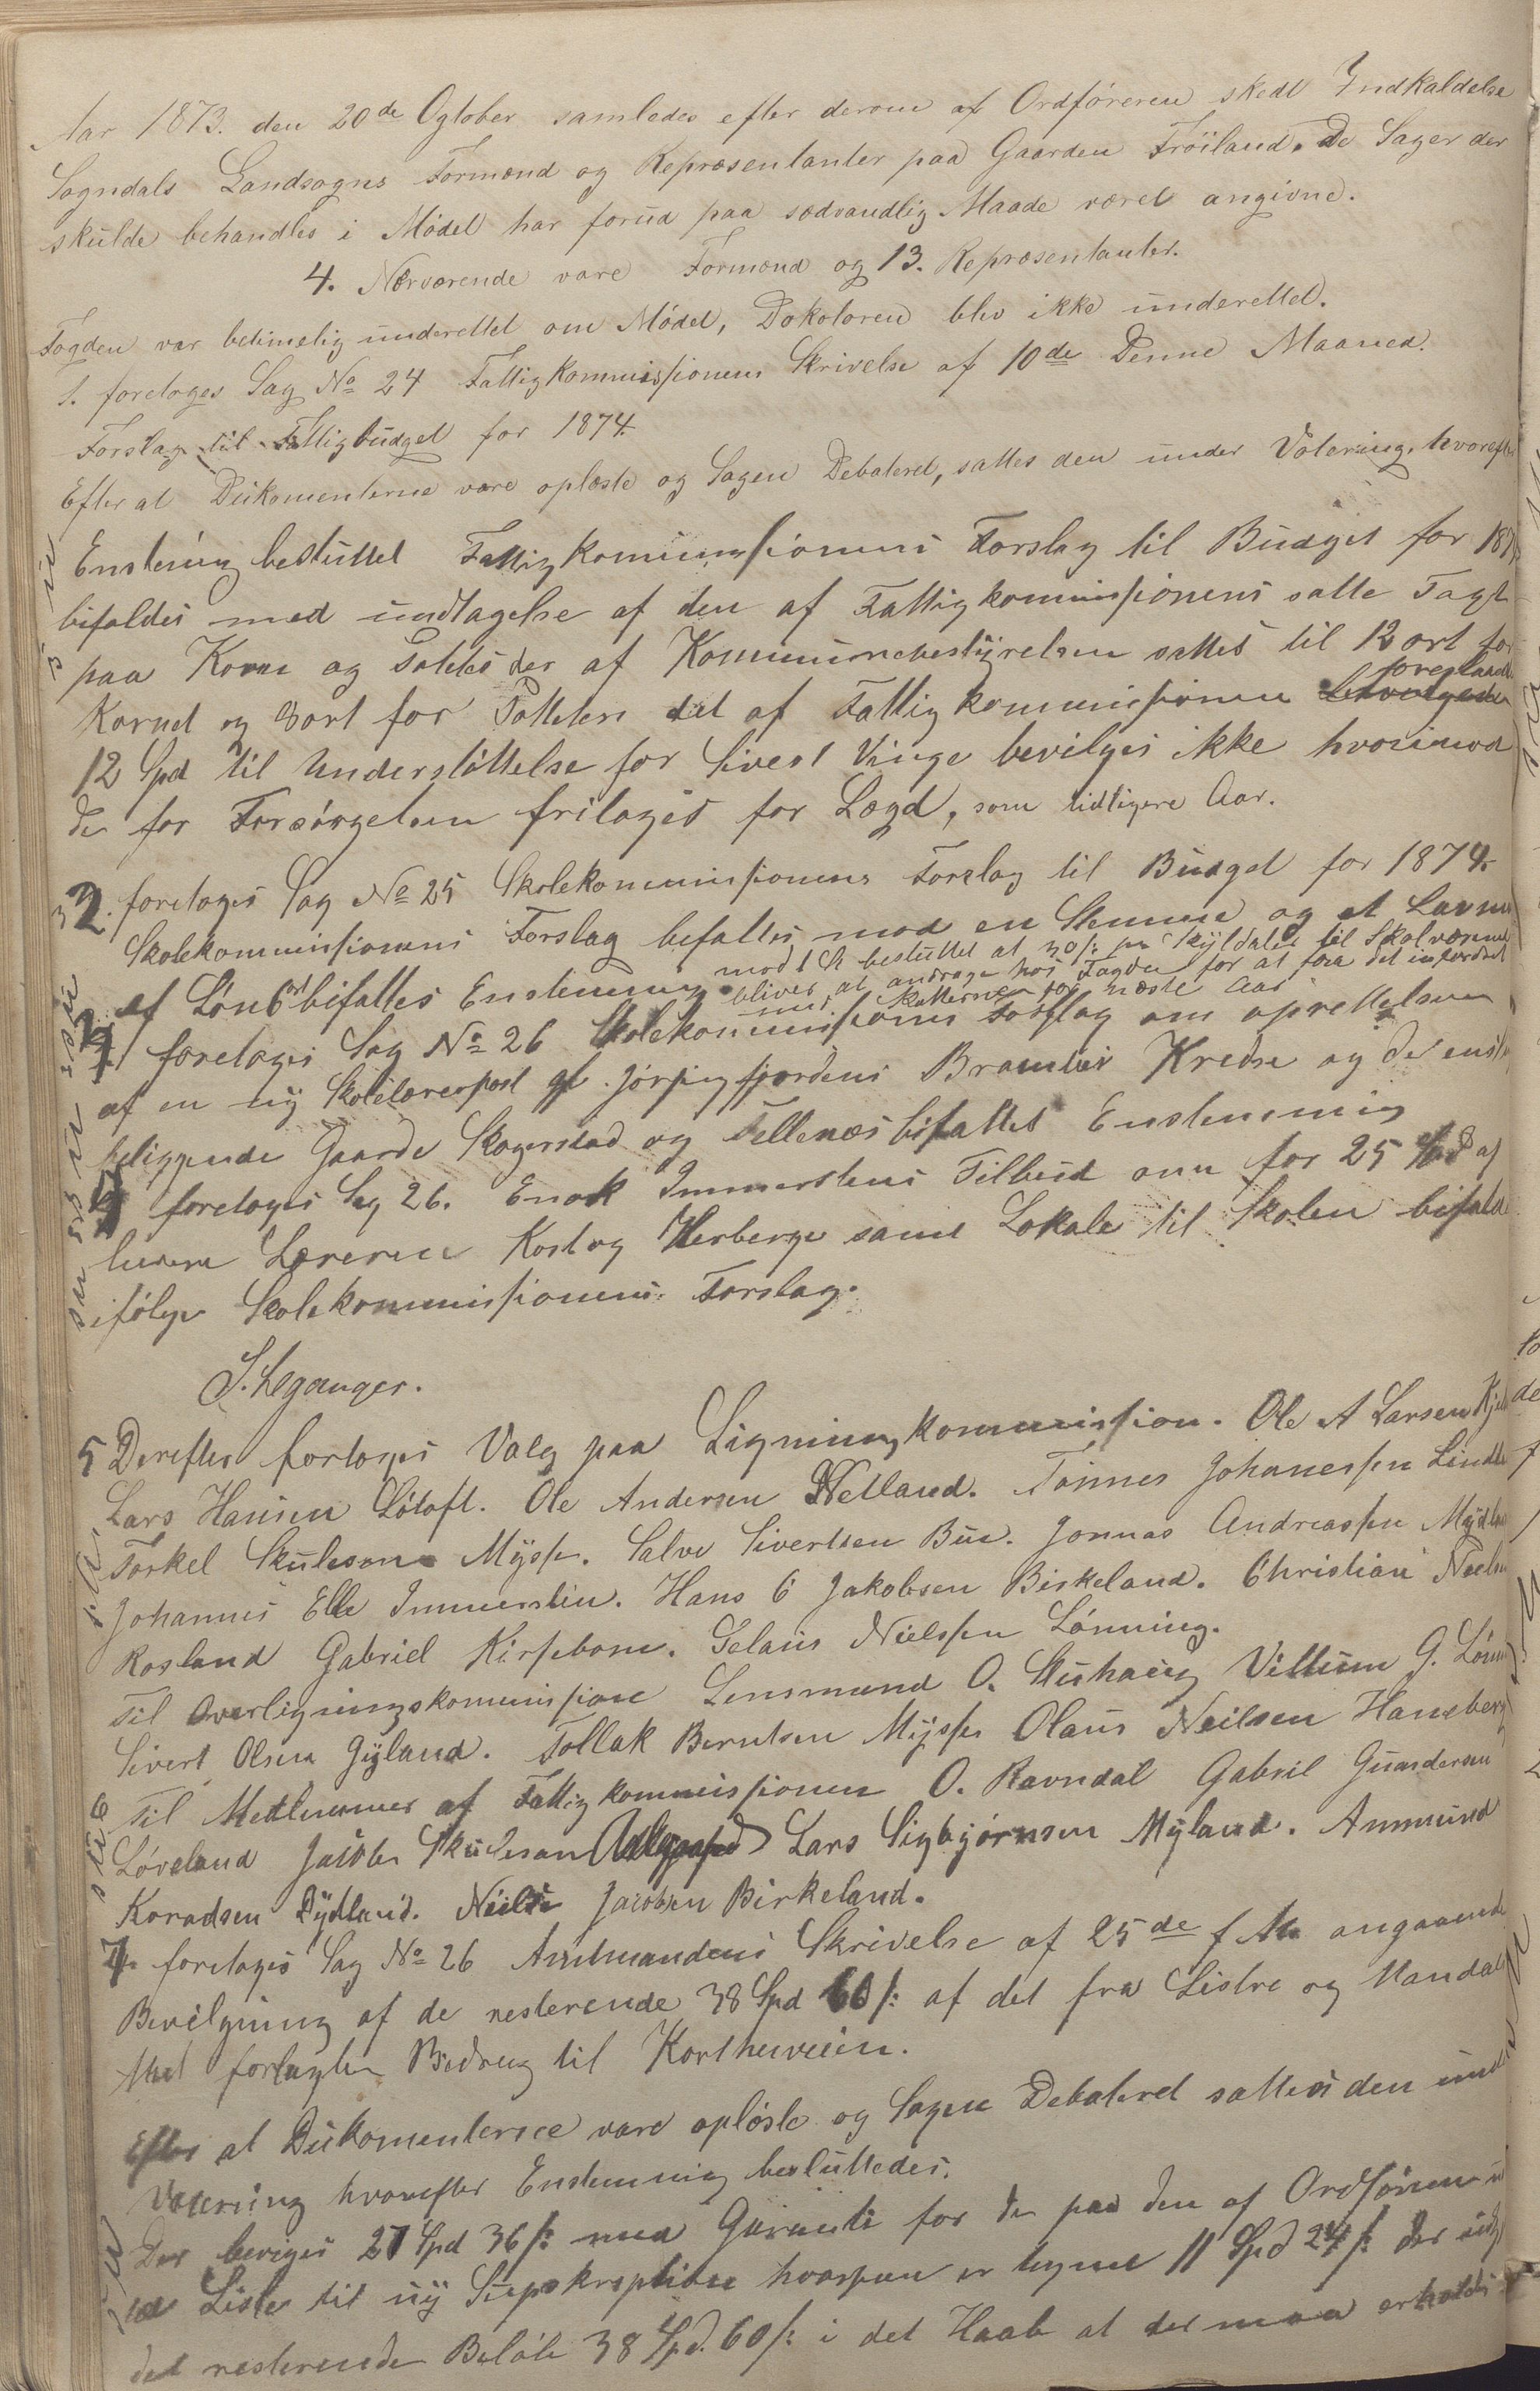 Aar 1873. den 20de Ogtober samledes efter derom af Ordføreren skedt Indkaldelse
Sogndals Landsogns Formænd og Repræsentanter paa Gaarden Frøiland. De Sager der
skulde behandles i Mødet har forud paa sædvandlig Maade været angivne.
4. Nærværende vare Formænd og 13. Repræsentanter.
Fogden var betimelig underettet om Mødet, Doktoren blev ikke underettet.
1. foretoges Sag No 24 Fattigkommissionens Skrivelse af 10de Denne Maaned.
Forslag til Fattigbudget for 1874.
Efter at Dukomenterne vare oplæste og Sagen Debateret, sattes den under Votering, hvorefter
Enstemig besluttet Fattigkommissionens Forslag til Budget for
bifaldes med undtagelse af den af Fattigkommissionens satte Taxt
paa Korn og Potetes der af Kommunebestyrelsen sattes til 12 ort for
Kornet og 3 ort for Potteten det af Fattigkommissionen foreslaaede
12 Spd til Understøttelse for Sivert Vinge bevilges ikke hvorimod
de for Forsørgelsen fritages for Lægd, som tidligere Aar.
2. foretoges Sag No 25 Skolekommissionens Forslag til Budget for 1874.
Skolekommissionens Forslag befaltes mod en Stemme og et
af Løn bifaltes Enstemmig
mod 1 St besluttet at 30 s: pr Skyldaler til Skolvæsenet
bliver at andrage hos Fogden for at faa det inforderet
med Skatterne for næste Aar
3 foretoges Sag No 26 Skolekommissionens Forslag om oprettelsen
af en ny Skolelærerpost Jøssingfjordens Kredse og de
beliggende Gaarde Skogerstad og Tellenæs bifaltes Enstemmig
4 foretoges Sag 26. Enok Immerstens Tilbud om for 25 Spd at
levere Læreren Kost og Herberge samt Lokale til Skolen
ifølge Skolekommissionens Forslag.
S. Leganger.
5 Derefter foretoges Valg paa Ligningkommission. Ole A Larsen
Lars Hansen Løtoft. Ole Andersen Netland. Tønnes Johanessen
Torkel Skuleson Mysse. Salve Sivertsen Bue. Jonnas Andreassen
Johannes Elle Immerstein. Hans C Jakobsen Birkeland. Christian
Rosland Gabriel Kirsebom. Selaus Nielssen Lønning.
Til Overligningskommission Lensmand O. Stuhaug Villum G.
Sivert Olsen Gyland. Tollak Berntsen Mysse Olaus Neilsen Haneberg
Til Medlemmer af Fattigkommissionen O. Ravndal Gabril Gundersen
Løveland Jacob Skuleson Lars Sigbjørnsen Myland. Ammund
Koradsen Dydland. Neils Jacobsen Birkeland.
7. foretoges Sag No 26 Amtmandens Skrivelse af 25de f M angaaende
Bevilgning af de resterende 38 Spd 60 s: af det fra Listre og Mandals
Amt forlagte Bidrag til
Efter at Dukomenterne vare opløste og Sagen Debateret sattes den under
Votering hvorefter Enstemmig besluttedes.
Der beviges 27 Spd 36 s: med Garanti for de paa den af Ordføreren
Liste til ny hvorpaa er tegnet 11 Spd 24 s: der
det resterende Beløb 38 Spd. 60 s: i det Haab at det maa erholdes